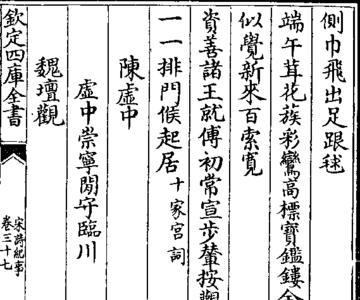 側巾飛出足跟毬
端午茸花族彩鸞高標寶鑑鏤金
似覺新來百索寛
資善諸王就傅初常宣步輦按觀
一一排門候起居十家宫詞
陳虚中
虚中崇寧閒守臨川
魏壇觀
欽定四庫全書
宋詩紀事
卷三十七